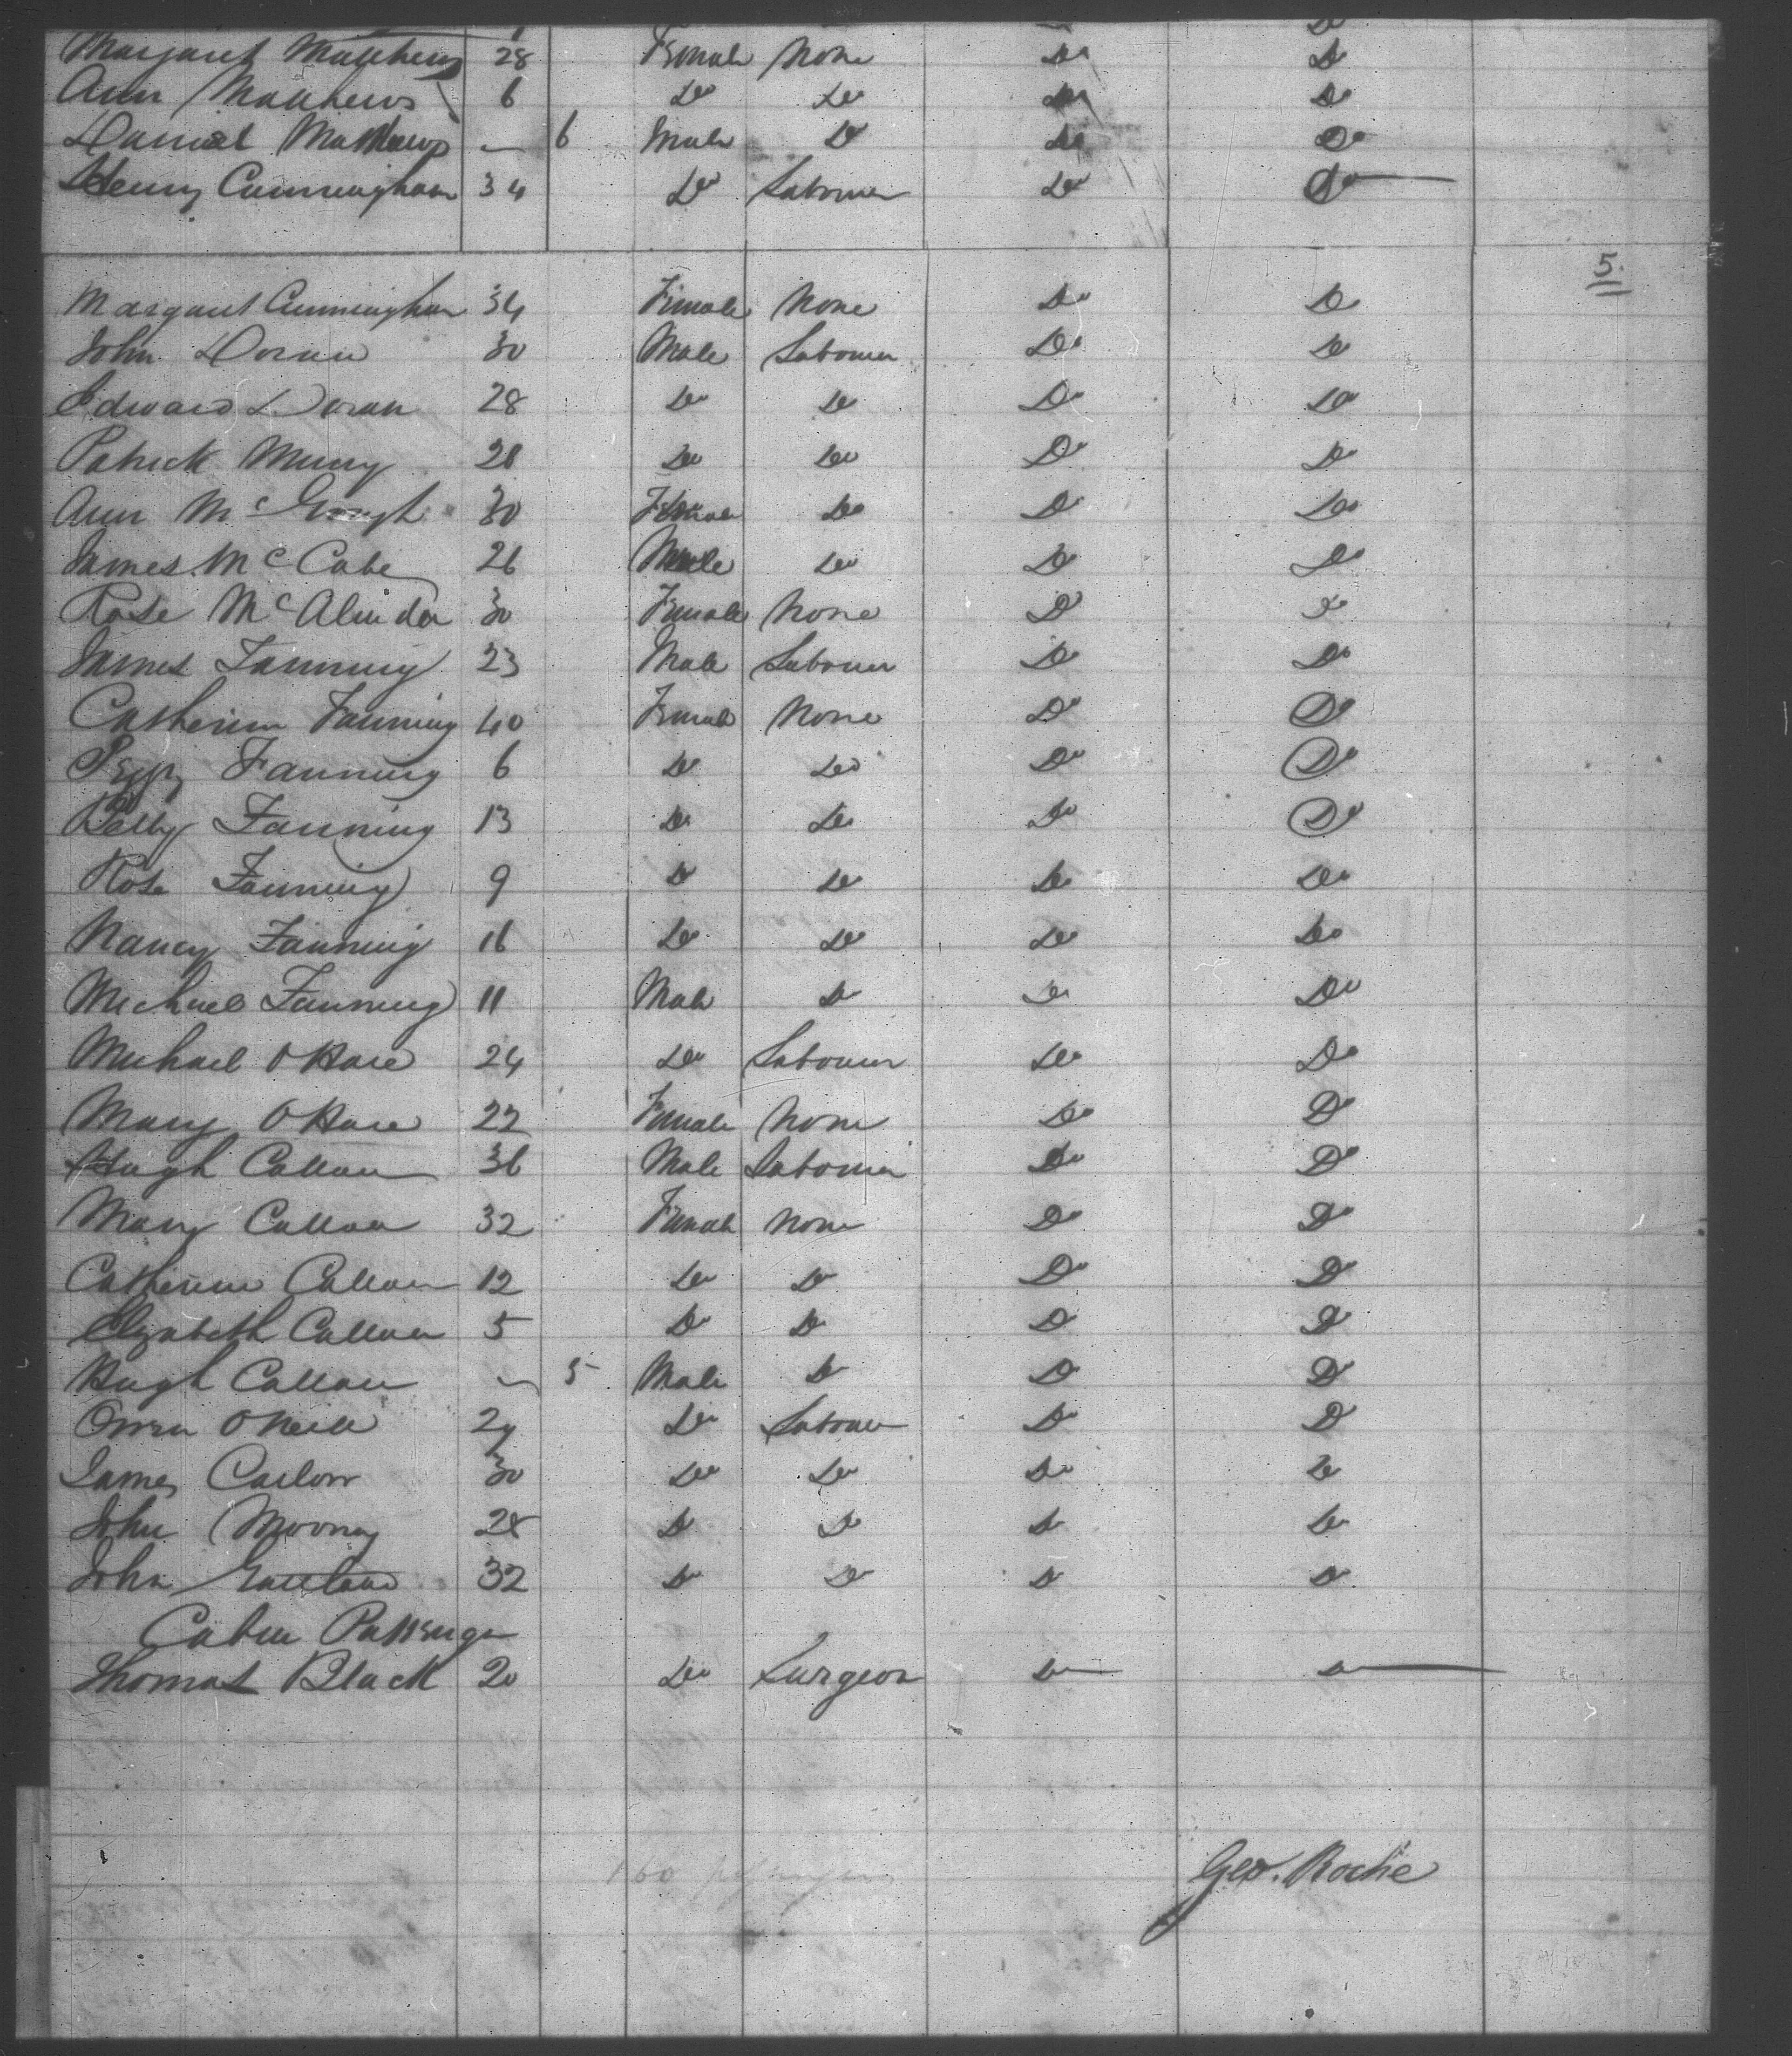 Margaret Matthews 28 Female None Do Do
Ann Matthews 6 Do Do Do Do
Daniel Matthews — 6 Male Do Do Do
Henry Cunningham 34 Do Labourer Do Do
5.
Margaret Cunningham 34 Female None Do Do
John Doran 30 Male Labourer Do Do
Edward Doran 28 Do Do Do Do
Patrick 28 Do Do Do Do
Ann McGough 30 Female Do Do Do
James McCabe 26 Male Do Do Do
Rose McAlinden 30 Female None Do Do
James Fanning 23 Male Labourer Do Do
Catherine Fanning 40 Female None Do Do
Peggy Fanning 6 Do Do Do Do
Betty Fanning 13 Do Do Do Do
Rose Fanning 9 Do Do Do Do
Nancy Fanning 16 Do Do Do Do
Michael Fanning 11 Male Do Do Do
Michael O Hare 24 Do Labourer Do Do
Mary O Hare 22 Female None Do Do
Hugh Callan 36 Male Labourer Do Do
Mary Callan 32 Female None Do Do
Catherine Callan 12 Do Do Do Do
Elizabeth Callan 5 Do Do Do Do
Hugh Callan — 5 Male Do Do Do
Owen O Neill 29 Do Labourer Do Do
James Carlon 30 Do Do Do Do
John Mooney 28 Do Do Do Do
John 32 Do Do Do Do
Cabin Passenger
Thomas Black 20 Do Surgeon Do Do
160 passengers
Geo. Roche